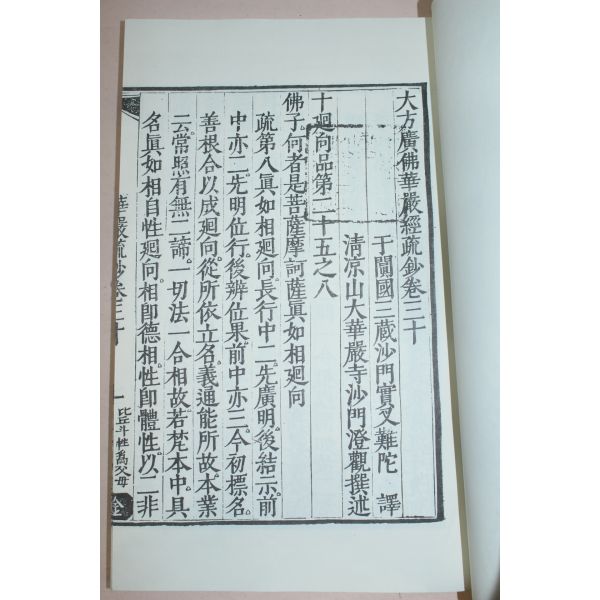 大方廣佛華嚴經疏鈔卷三十
于闐國三藏沙門實叉難陀 譯
清凉山大華嚴寺沙門澄觀撰述
十廻向品第二十五之八
佛子何者是菩薩摩訶薩眞如相廻向
疏第八眞如相廻向長行中二先廣明後結示前
中亦二先明位行後辨位果前中亦三今初標名
善根合以成廻向從所依立名義通能所故本業
云常照有無二諦一切法一合相故若梵本中具
名眞如相自性廻向相卽德相性卽體性以二非
華嚴疏鈔卷三十
一
比丘斗性爲父母